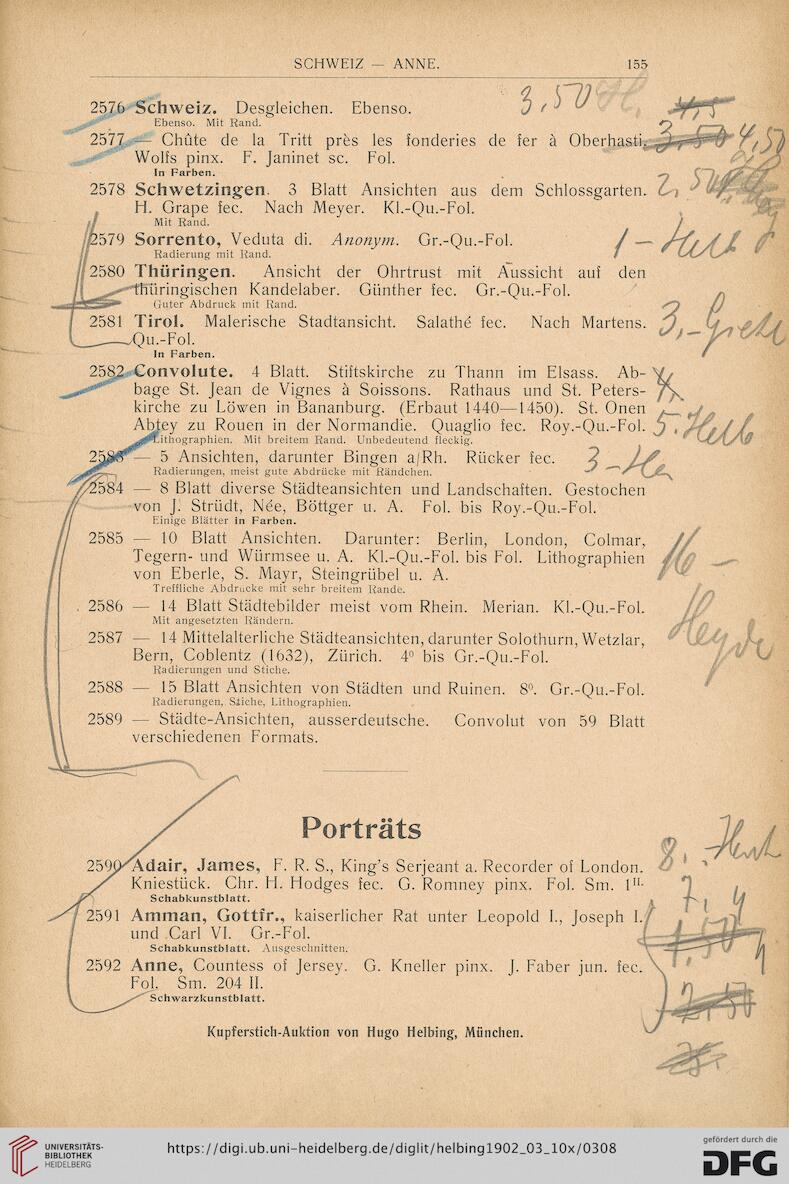 SCHWEIZ — ANNE. 155
3,50
4,5
2576 Schweiz. Desgleichen. Ebenso.
Ebenso. Mit Rand.
2577 — Chûte de la Tritt près les fonderies de fer à Oberhasti. 3,50 4,50
Wolfs pinx. F. Janinet sc. Fol.
In Farben.
2578 Schwetzingen. 3 Blatt Ansichten aus dem Schlossgarten. 2,50
H. Grape fec. Nach Meyer. Kl.-Qu.-Fol.
Mit Rand.
2579 Sorrento, Veduta di. Anonym. Gr.-Qu.-Fol. 1 –
Radierung mit Rand.
2580 Thüringen. Ansicht der Ohrtrust mit Aussicht auf den
thüringischen Kandelaber. Günther fec. Gr.-Qu.-Fol.
Guter Abdruck mit Rand.
2581 Tirol. Malerische Stadtansicht. Salathé fec. Nach Martens. 3,–
Qu.-Fol.
In Farben.
2582 Convolute. 4 Blatt. Stiftskirche zu Thann im Elsass. Ab-
bage St. Jean de Vignes à Soissons. Rathaus und St. Peters-
kirche zu Löwen in Bananburg. (Erbaut 1440—1450). St. Onen
Abtey zu Rouen in der Normandie. Quaglio fec. Roy.-Qu.-Fol. 5.
Lithographien. Mit breitem Rand. Unbedeutend fleckig.
2583 — 5 Ansichten, darunter Bingen a/Rh. Rücker fec. 3 –
Radierungen, meist gute Abdrücke mit Rändchen.
2584 — 8 Blatt diverse Städteansichten und Landschaften. Gestochen
von J. Strüdt, Née, Böttger u. A. Fol. bis Roy.-Qu.-Fol.
Einige Blätter in Farben.
2585 — 10 Blatt Ansichten. Darunter: Berlin, London, Colmar,
Tegern- und Würmsee u. A. Kl.-Qu.-Fol. bis Fol. Lithographien
von Eberle, S. Mayr, Steingrübel u. A. 16 –
Treffliche Abdrucke mit sehr breitem Rande.
2586 — 14 Blatt Städtebilder meist vom Rhein. Merian. Kl.-Qu.-Fol.
Mit angesetzten Rändern.
2587 — 14 Mittelalterliche Städteansichten, darunter Solothurn, Wetzlar, Heyde
Bern, Coblentz (1632), Zürich. 4⁰ bis Gr.-Qu.-Fol.
Radierungen und Stiche.
2588 — 15 Blatt Ansichten von Städten und Ruinen. 8⁰. Gr.-Qu.-Fol.
Radierungen, Stiche, Lithographien.
2589 — Städte-Ansichten, ausserdeutsche. Convolut von 59 Blatt
verschiedenen Formats.
Porträts
2590 Adair, James, F. R. S., King's Serjeant a. Recorder of London. 8.
Kniestück. Chr. H. Hodges fec. G. Romney pinx. Fol. Sm. 1II.
Schabkunstblatt.
2591 Amman, Gottfr., kaiserlicher Rat unter Leopold I., Joseph I.
und Carl VI. Gr.-Fol. 1,50
Schabkunstblatt. Ausgeschnitten.
2592 Anne, Countess of Jersey. G. Kneller pinx. J. Faber jun. fec.
Fol. Sm. 204 II. 2,50
Schwarzkunstblatt.
Kupferstich-Auktion von Hugo Helbing, München.
UNIVERSITÄTS-
BIBLIOTHEK
HEIDELBERG
https://digi.ub.uni-heidelberg.de/diglit/helbing1902_03_10x/0308
gefördert durch die
DFG